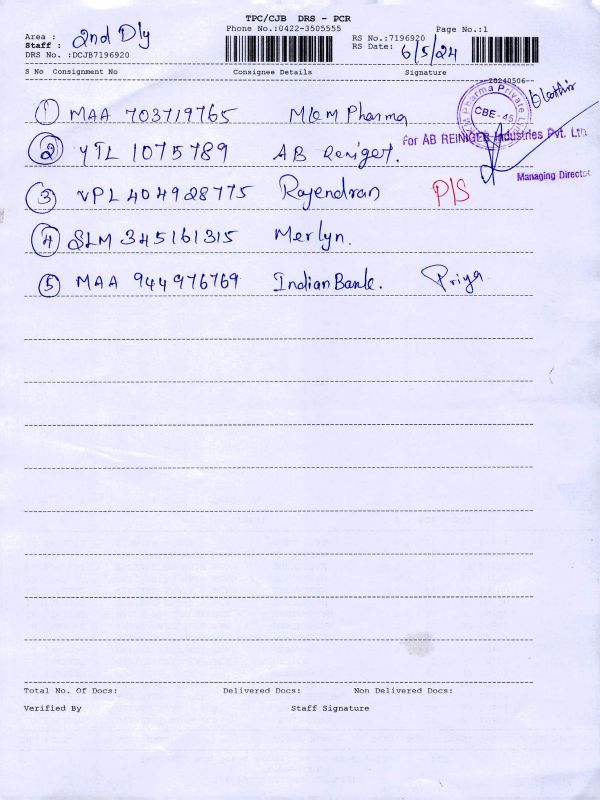 TPC/CJB DRS - PCR
Phone No.:0422-3505555
Page No.:1
Area :
Staff : 2nd Dly
DRS No. :DCJB7196920
RS No.:7196920
RS Date: 6/5/24
S No Consignment No Consignee Details Signature
20240506
① MAA 703719765 M&M Pharma
Pharma Private
CBE-45
② YTL 1075789 AB Reniger.
for AB REINIGER Industries Pvt. Ltd
Managing Director
③ VPL 404928775 Rajendran P/S
④ SLM 345161315 Merlyn.
⑤ MAA 944976769 Indian Bank. Priya
Total No. Of Docs: Delivered Docs: Non Delivered Docs:
Verified By Staff Signature